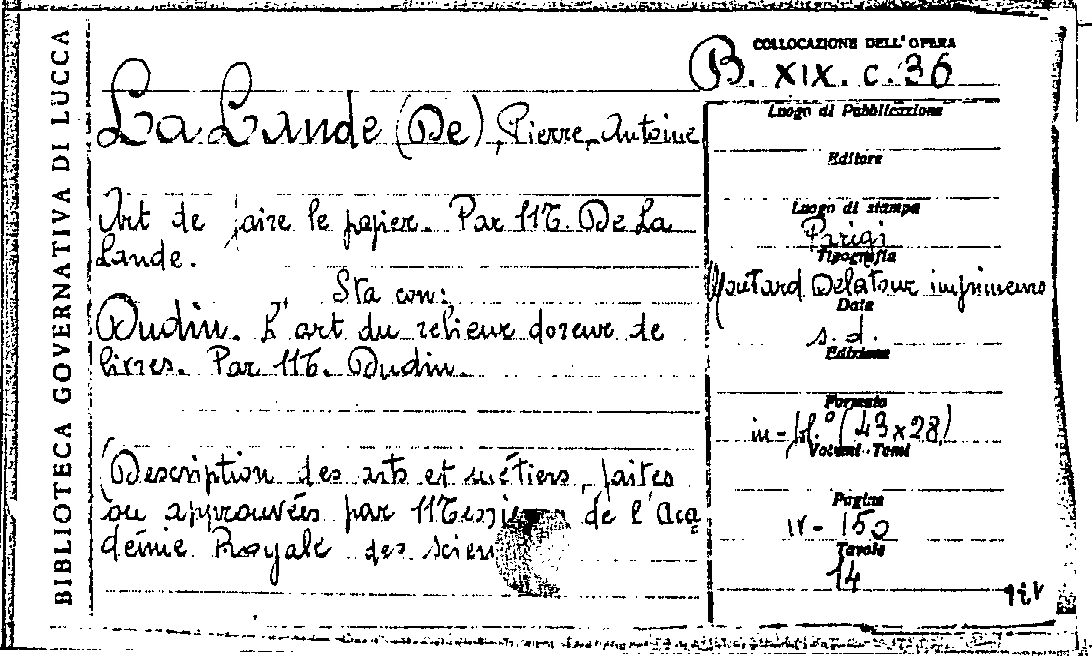 BIBLIOTECA GOVERNATIVA DI LUCCA
COLLOCAZIONE DELL'OPERA
B. XIX. c. 36
La Lande (De), Pierre, Antoine
Art de faire le papier. Par M. De La
Lande.
Sta con:
Dudin. L'art du relieur doreur de
livres. Par M. Dudin.
(Description des arts et métiers, faites
ou approuvées par Messieurs de l'Aca
démie Royale des scien
Luogo di Pubblicazione
Editore
Luogo di stampa
Parigi
Tipografia
Moutard Delatour
Data
s. d.
Edizione
Formato
in-fol.° (43x28)
Volumi-Tomi
Pagine
IV-150
Tavole
14